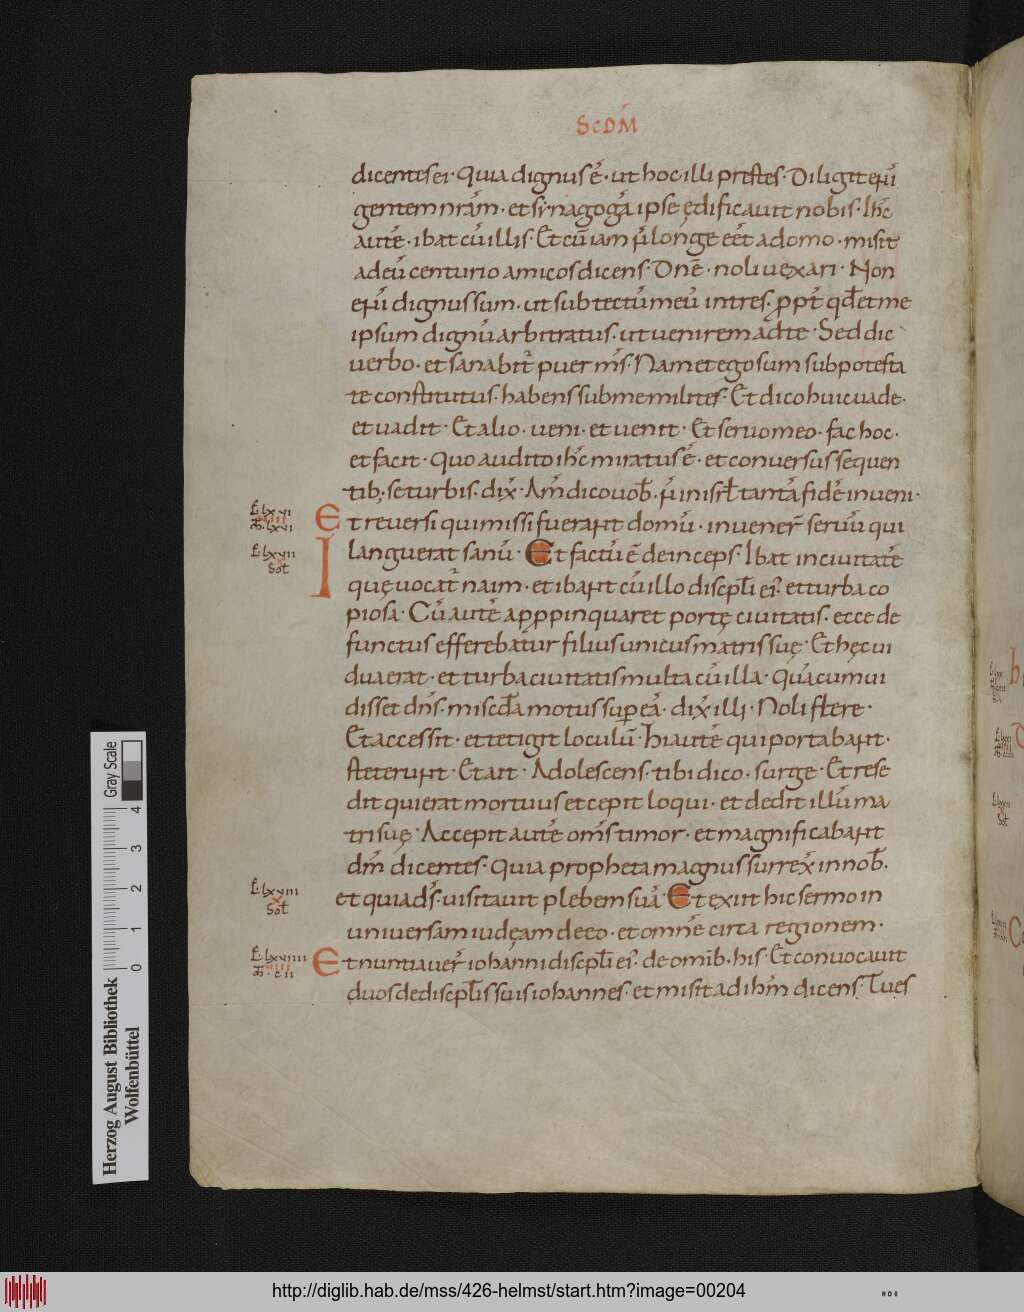 ScDM̄
dicentes ei· Quia dignus ē· ut hoc illi prestes· Diligit eni̅
gentem nrām· et synagogā ipse ędificauit nobis· Ihc̄
autē· ibat cū illis· Et cū iam n̄ longe eēt a domo· misit
ad eū centurio amicos dicens· Dnē· noli uexari· Non
eni̅ dignus sum· ut sub tectū meū intres· ppt̄ qđ et me
ipsum dignū arbitratus· ut uenirem ad te· Sed dic
uerbo· et sanabit᷑ puer ms̄· Nam et ego sum sub potesta
te constitutus· habens sub me milites· Et dico huic uade·
et uadit· Et alio· ueni· et uenit· Et seruo meo· fac hoc·
et facit· Quo audito ihc̄ miratus ē· et conuersus sequen
tib; se turbis· dix̄· Am̄ dico uob̄· n̄ in isrł tantā fidē inueni·
Et reuersi qui missi fuerant domū· inuener̄ seruū qui
languerat sanū· Et factū ē deinceps· Ibat in ciuitatē
quę uocat᷑ naim· et ibant cū illo discpłi ei᷒· et turba co
piosa· Cū autē appropinquaret portę ciuitatis· ecce de
functus efferebatur filius unicus matris suę· Et hęc ui
dua erat· et turba ciuitatis multa cū illa· Quā cum ui
disset dns̄· miscđa motus sup eā· dix̄ illi· Noli flere·
Et accessit· et tetigit loculū· Hi autē qui portabant·
steterunt· Et ait· Adolescens· tibi dico· surge· Et rese
dit qui erat mortuus et cepit loqui· et dedit illū ma
tri suę· Accepit autē oms̄ timor· et magnificabant
dm̄ dicentes· Quia propheta magnus surrex̄ in nob̄·
et quia ds̄· uisitauit plebem suā· Et exiit hic sermo in
uniuersam iudęam de eo· et omnē circa regionem·
Et nuntiauer̄ iohanni discpłi ei᷒· de omib̄· his· Et conuocauit
duos de discpłis suis iohannes· et misit ad ihm̄ dicens· Tu es
L· lxvi
M· lxvi
L· lxvii
X
Sol̄
L· lxviii
X
Sol̄
L· lxviiii
M· cii
Gray Scale
0 1 2 3 4
Herzog August Bibliothek
Wolfenbüttel
http://diglib.hab.de/mss/426-helmst/start.htm?image=00204